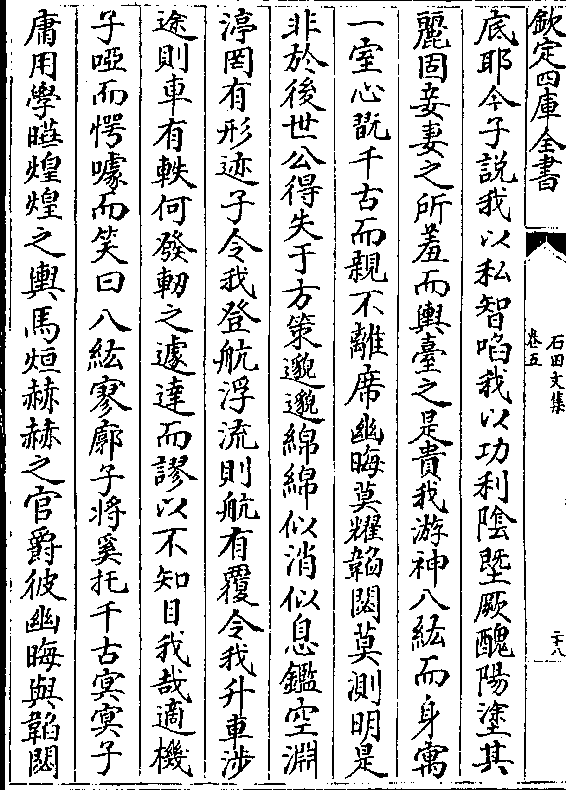 欽定四庫全書
石田文集
卷五
二十八
底耶今子說我以私智啗我以功利陰塈厥醜陽塗其
麗固妾妻之所羞而輿臺之是貴我游神八紘而身寓
一室心翫千古而親不離席幽晦莫耀韜閟莫測明是
非於後世公得失于方策邈邈綿綿似消似息鑑空淵
渟罔有形迹子令我登航浮流則航有覆令我升車涉
途則車有軼何發軔之遽達而謬以不知目我哉適機
子啞而愕噱而笑曰八紘寥廓子將奚托千古冥冥子
庸用學曣煌煌之輿馬烜赫赫之官爵彼幽晦與韜閟